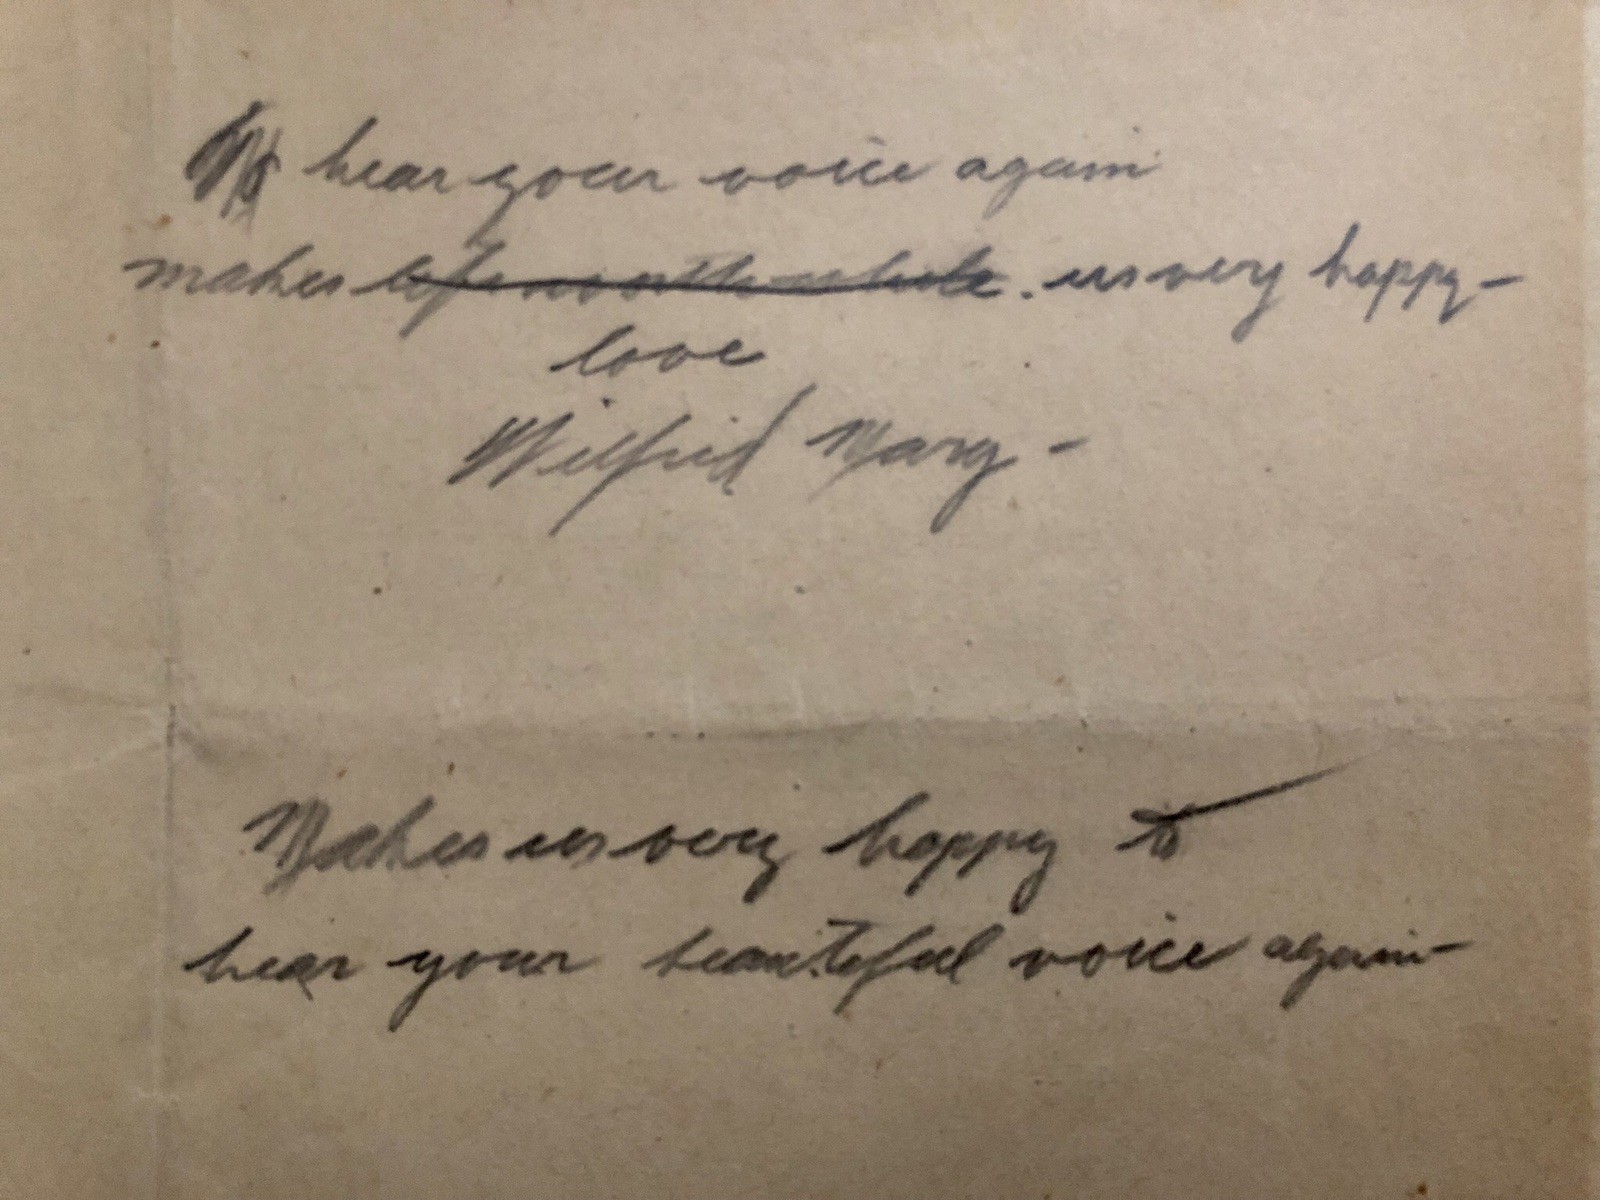 To hear your voice again
makes life worth while. us very happy-
love
Wilfrid Mary -
Makes us very happy to
hear your beautiful voice again-